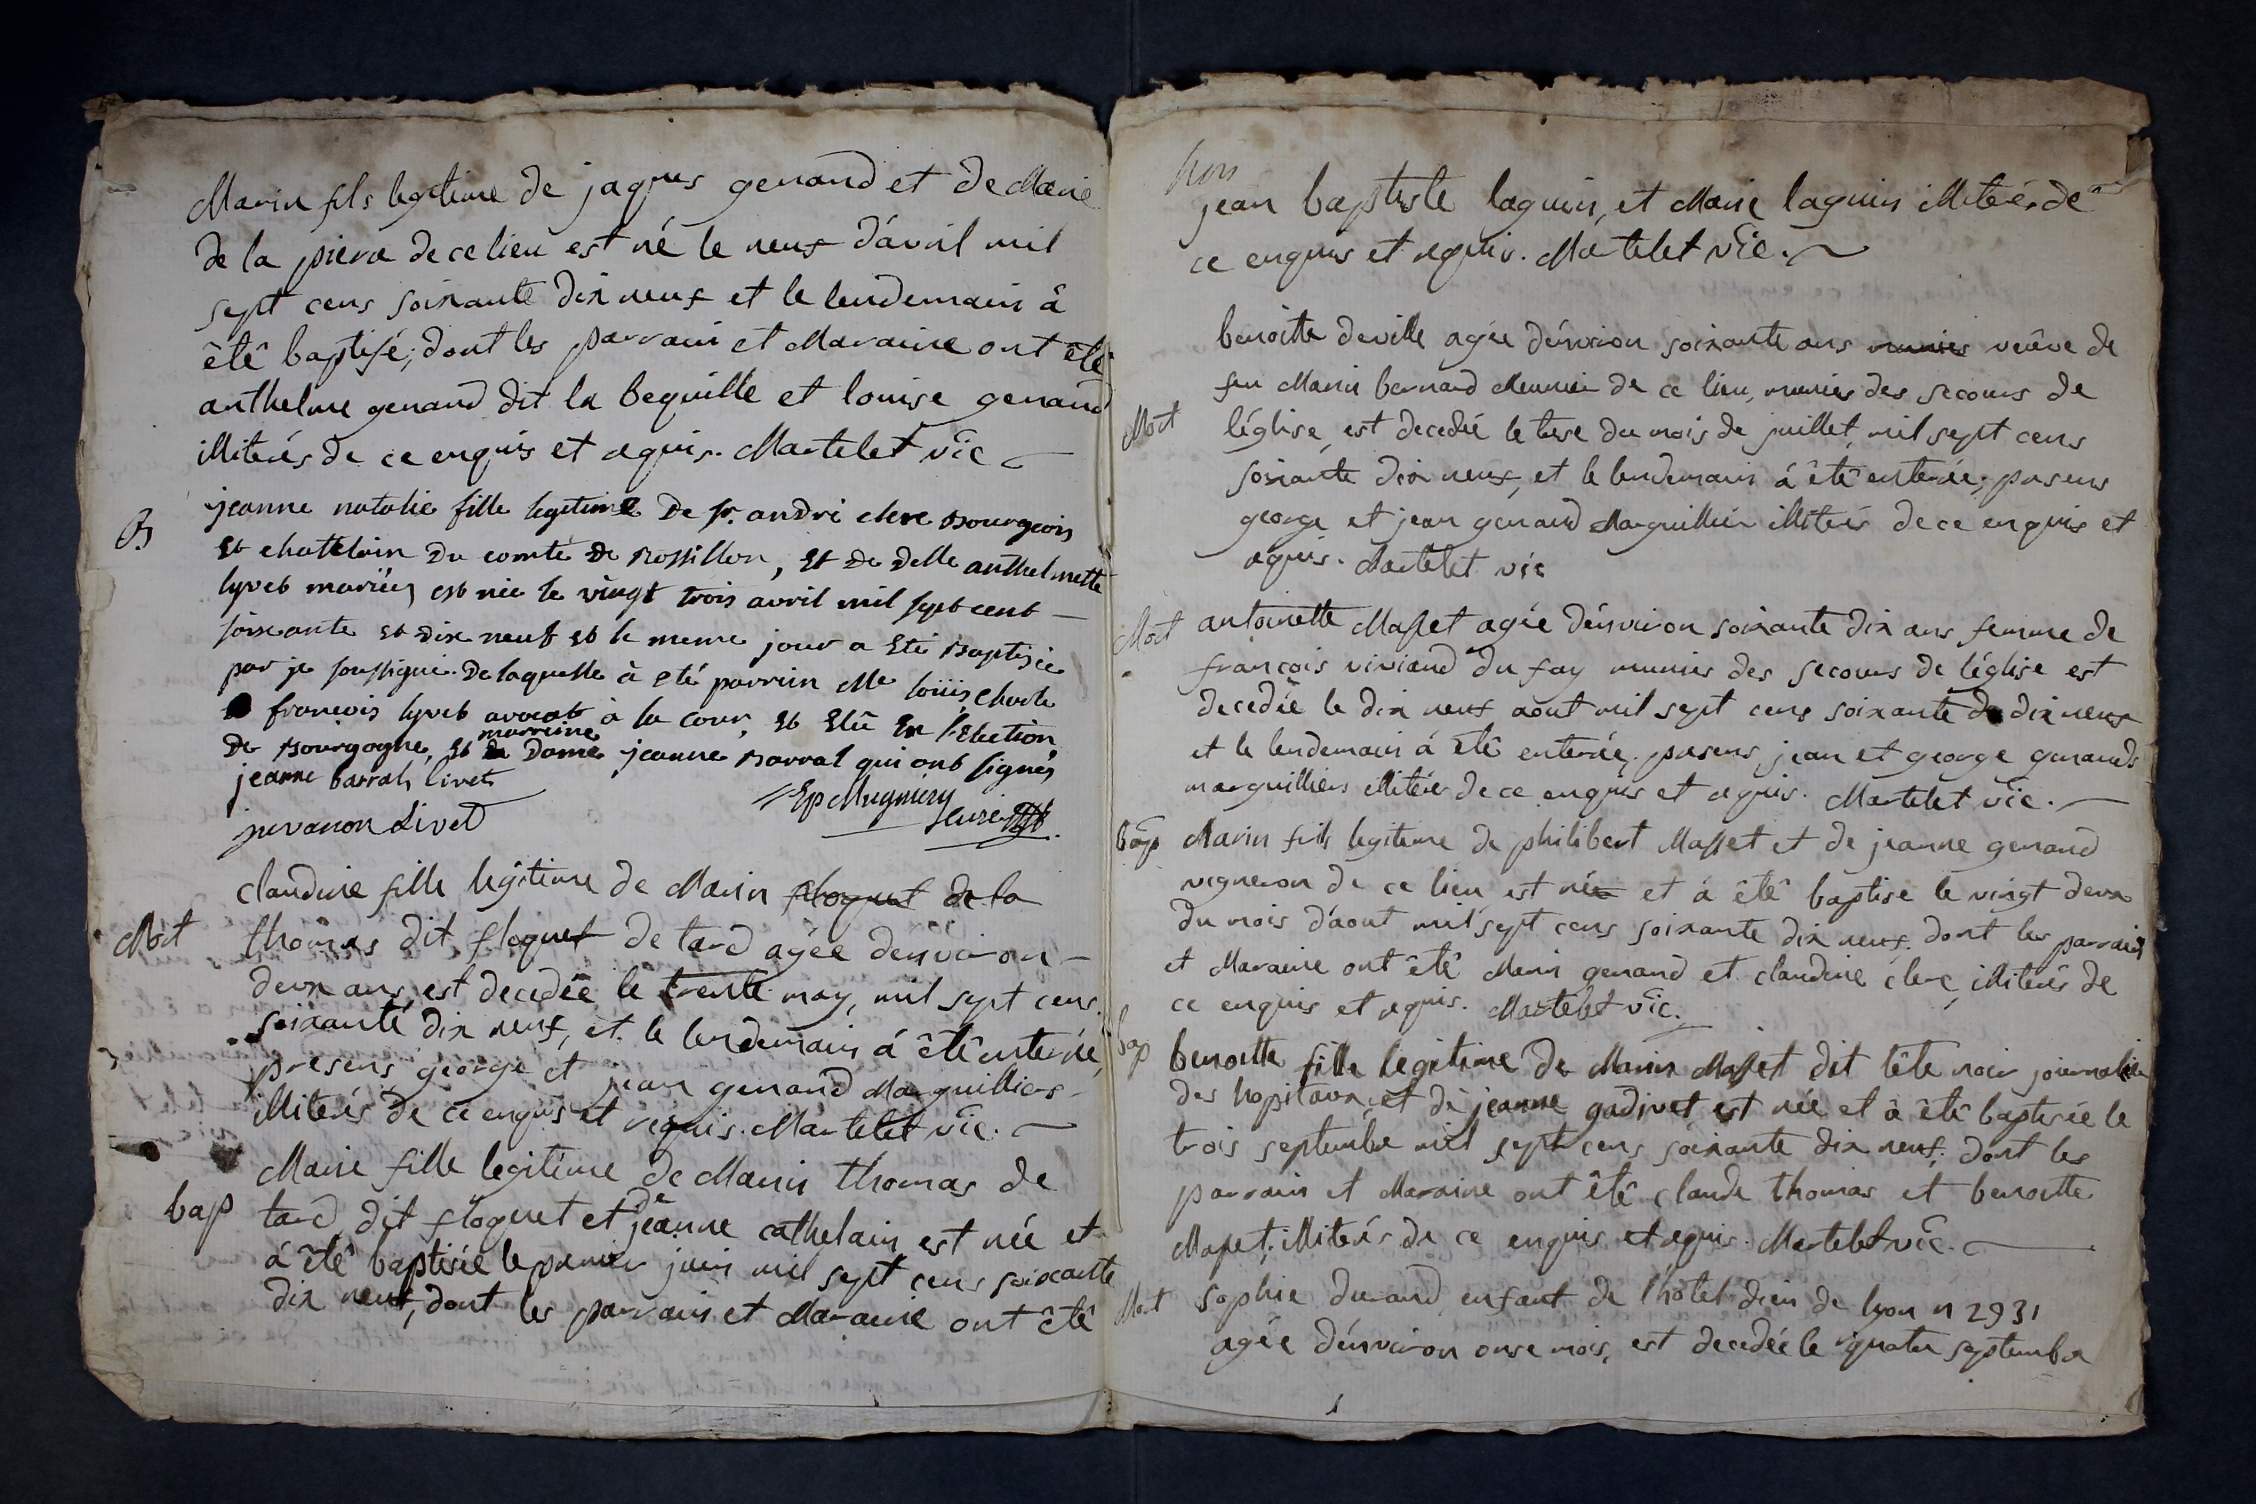 Marin fils legitime de jaques genand et de Marie
de la piera de ce lieu est né le neuf d'avril mil
sept cens soixante dix neuf et le lendemain à
êtê baptisé; dont les parrain et Maraine ont êtê
anthelme genand dit la bequille et louise genand
illiterés de ce enquis et requis. Martelet vic
B
jeanne natalie fille legitime de sr. andré clere Bourgeois
et chattelain du comté de Rossillon, et de delle anthelmette
lyvet mariés est née le vingt trois avril mil sept cent
soixante et dix neuf et le meme jour a eté Baptisée
par je soussigné. de laquelle à eté parrein Mr loüis charle
francois lyvet avocat à la cour, et Elû En l'Election
de Bourgogne, et marreine Dame jeanne Barrat qui ont signés
jeanne barrat livet
juvanon Livet
Ep Mugniery
curé
claudine fille legitime de Marin floquet de la
Mort
thomas dit floquet de tard agée denviron
deux ans, est decedée le trente may, mil sept cens
soixante dix neuf, et le lendemain á êtê enterrée,
presens george et jean genand Marguilliers
illiterés de ce enquis et requis. Martelet vic.
Marie fille legitime de Marin thomas de
bap
tard dit floquet et de jeanne cathelain est née et
á êtê baptisée le premier juin mil sept cens soixante
dix neuf, dont les parrain et Maraine ont êtê
jean baptiste laguin, et Marie laguin illiterés de
ce enquis et requis. Martelet vic.
benoitte deville agée d'environ soixante ans munies veûve de
feu Marin bernard Meunier de ce lieu, munies des secours de
Mort
léglise, est decedée le trese du mois de juillet, mil sept cens
soixante dix neuf, et le lendemain á êtê enterée; presens
george et jean genand Marguillier illiterés de ce enquis et
requis. Martelet vic
Mort
antoinette Masset agée d'environ soixante dix ans femme de
françois viviand du fay munies des secours de léglise est
decedée le dix neuf aout mil sept cens soixante dix neuf
et le lendemain á êtê enterée. presens jean et george genands
marguilliers illiterés de ce enquis et requis. Martelet vic.
bap
Marin fils legitime de philibert Masset et de jeanne genand
vigneron de ce lieu est née et á êtê baptise le vingt deux
du mois d'aout mil sept cens soixante dix neuf. dont les parrain
et Maraine ont êtê Marin genand et claudine clerc, illiterés de
ce enquis et requis. Martelet vic.
bap
benoitte fille legitime de Marin Masset dit tête noir journalier
des hopitaux et de jeanne gadivet est née et à êtê baptisée le
trois septembre mil sept cens soixante dix neuf; dont les
parrain et Maraine ont êtê claude thomas et benoitte
Masset; illiterés de ce enquis et requis. Martelet vic.
Mort
sophie durand enfant de l'hôtel dieu de lyon n 2931
agée d'environ onse mois, est decedée le quatre septembre